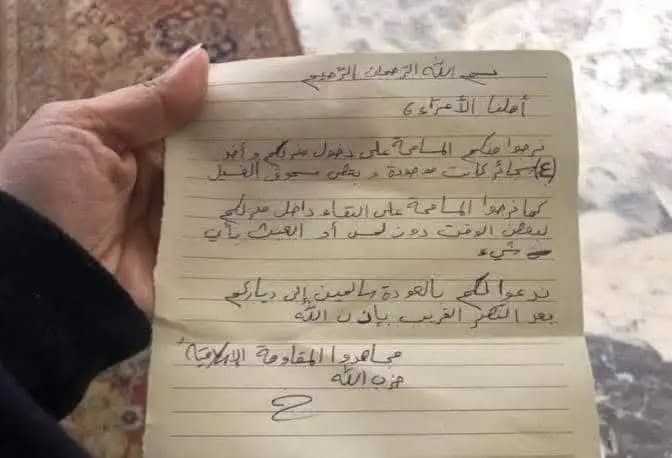 بسم الله الرحمن الرحيم
أهلنا الأعزاء،
نرجوا منكم المسامحة على دخول منزلكم وأخذ
(٤) سجائر كانت موجودة وبعض مسحوق الغسيل
كما نرجوا المسامحة على البقاء داخل منزلكم
لبعض الوقت دون لمس أو العبث بأي
شيء
ندعوا لكم بالعودة سالمين إلى دياركم
بعد النصر القريب بإذن الله
مجاهدوا المقاومة الإسلامية
حزب الله